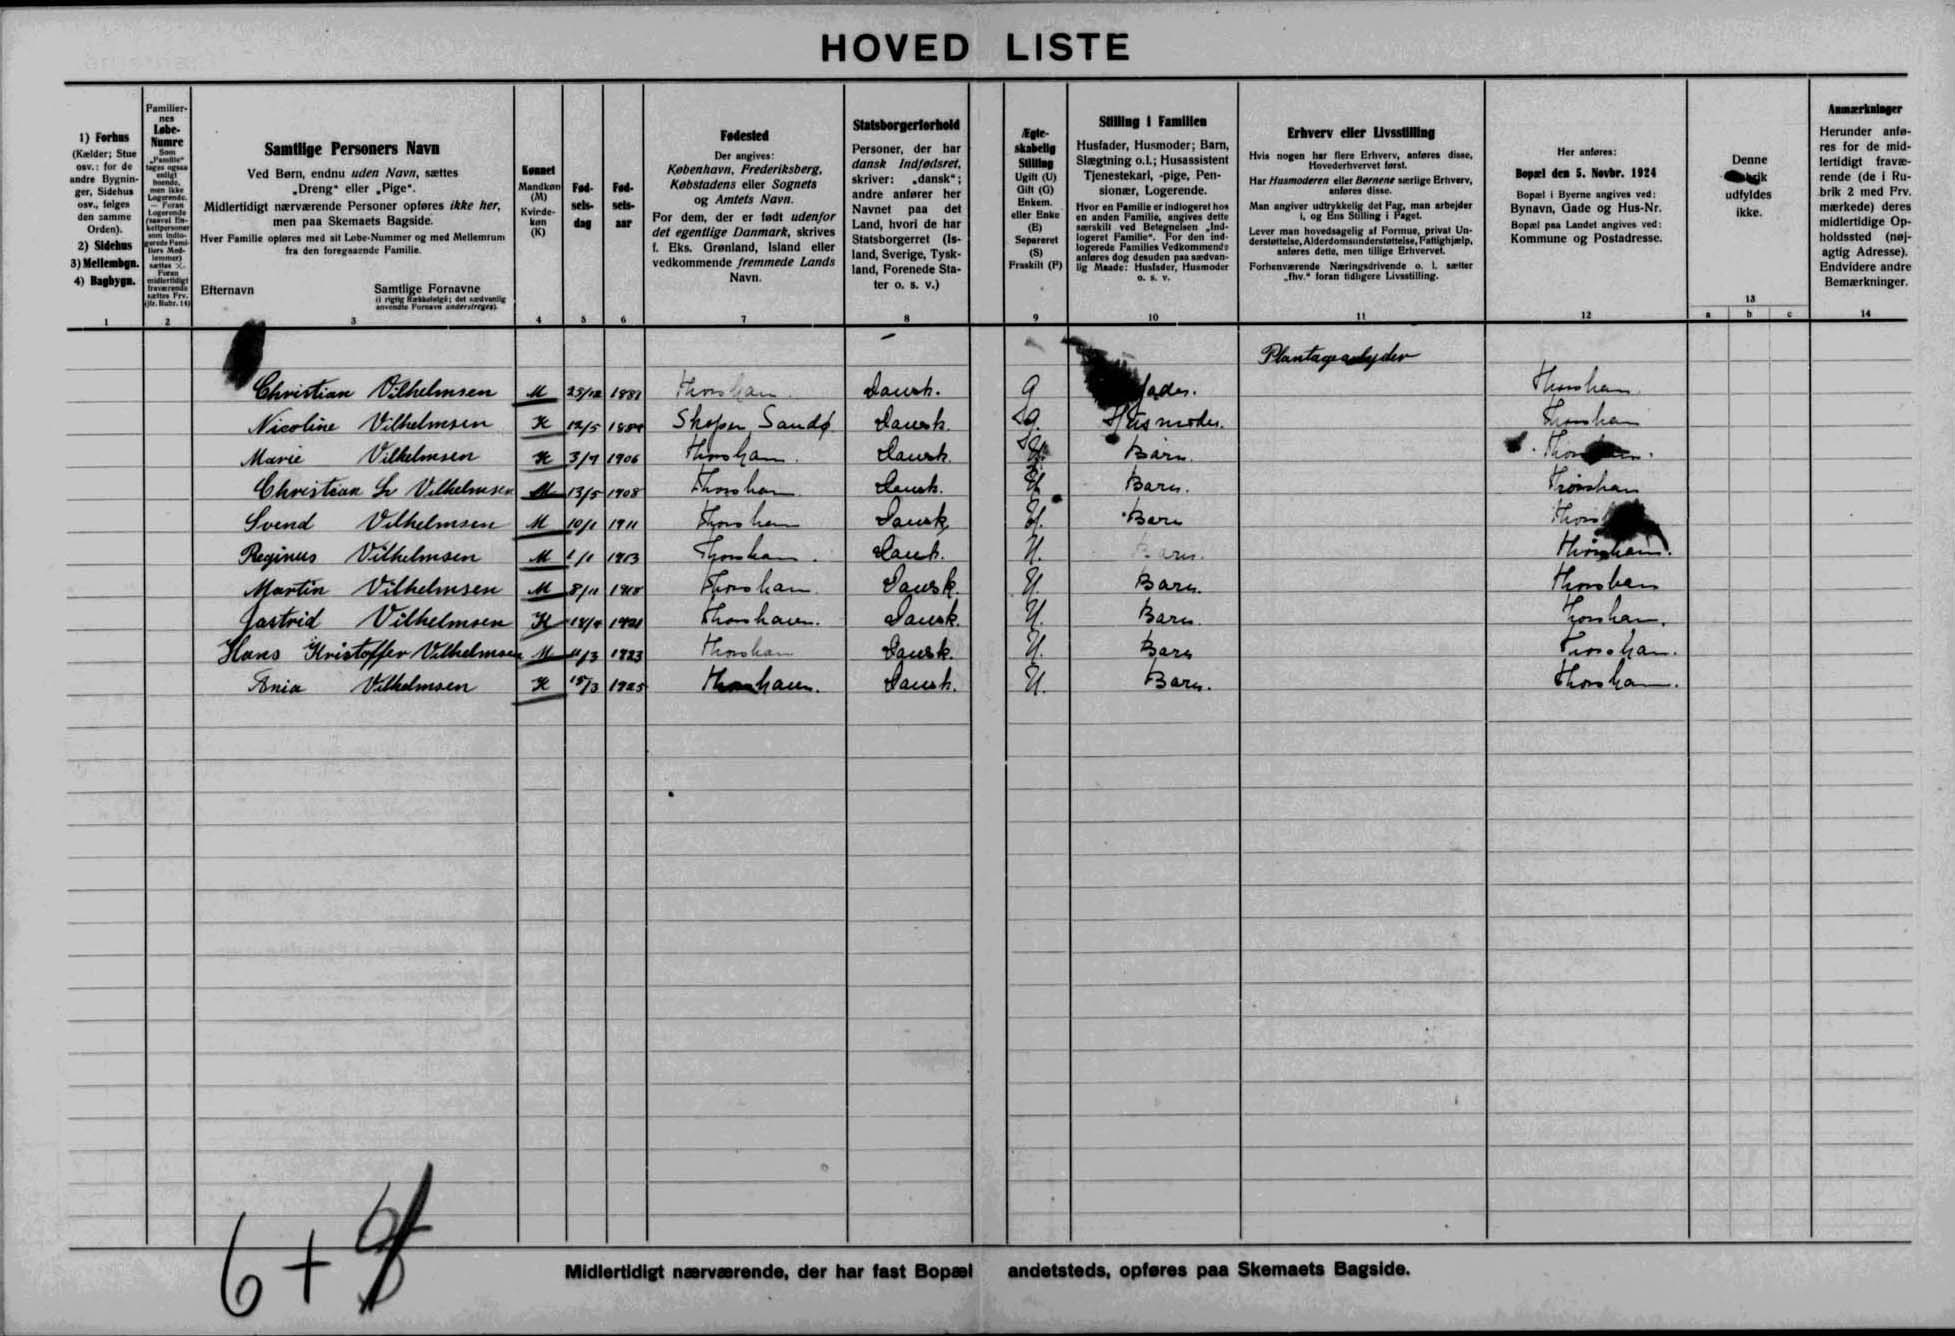 HOVED LISTE
1) Forhus
(Kælder; Stue
osv.: for de
andre Bygnin-
ger, Sidehus
osv., følges
den samme
Orden).
2) Sidehus
3) Mellembgn.
4) Bagbygn.
Familier-
nes
Løbe-
Numre
Samtlige Personers Navn
Ved Børn, endnu uden Navn, sættes
„Dreng“ eller „Pige“.
Midlertidigt nærværende Personer opføres ikke her,
men paa Skemaets Bagside.
Hver Familie opføres med sit Løbe-Nummer og med Mellemrum
fra den foregaaende Familie.
Efternavn Samtlige Fornavne
(i rigtig Rækkefølge; det sædvanlig
anvendte Fornavn understreges).
Kønnet
Mandkøn
(M)
Kvinde-
køn
(K)
Fød-
sels-
dag
Fød-
sels-
aar
Fødested
Der angives:
København, Frederiksberg,
Købstadens eller Sognets
og Amtets Navn.
For dem, der er født udenfor
det egentlige Danmark, skrives
f. Eks. Grønland, Island eller
vedkommende fremmede Lands
Navn.
Statsborgerforhold
Personer, der har
dansk Indfødsret,
skriver: „dansk“;
andre anfører her
Navnet paa det
Land, hvori de har
Statsborgerret (Is-
land, Sverige, Tysk-
land, Forenede Sta-
ter o. s. v.)
Ægte-
skabelig
Stilling
Ugift (U)
Gift (G)
Enkem.
eller Enke
(E)
Separeret
(S)
Fraskilt (F)
Stilling i Familien
Husfader, Husmoder; Barn,
Slægtning o.l.; Husassistent
Tjenestekarl, -pige, Pen-
sionær, Logerende.
Hvor en Familie er indlogeret hos
en anden Familie, angives dette
særskilt ved Betegnelsen „Ind-
logeret Familie“. For den ind-
logerede Families Vedkommende
anføres dog desuden paa sædvan-
lig Maade: Husfader, Husmoder
o. s. v.
Erhverv eller Livsstilling
Hvis nogen har flere Erhverv, anføres disse,
Hovederhvervet først.
Har Husmoderen eller Børnene særlige Erhverv,
anføres disse.
Man angiver udtrykkelig det Fag, man arbejder
i, og Ens Stilling i Faget.
Lever man hovedsagelig af Formue, privat Un-
derstøttelse, Alderdomsunderstøttelse, Fattighjælp,
anføres dette, men tillige Erhvervet.
Forhenværende Næringsdrivende o. l. sætter
„fhv.“ foran tidligere Livsstilling.
Her anføres:
Bopæl den 5. Novbr. 1924
Bopæl i Byerne angives ved:
Bynavn, Gade og Hus-Nr.
Bopæl paa Landet angives ved:
Kommune og Postadresse.
Denne
udfyldes
ikke.
Anmærkninger
Herunder anfø-
res for de mid-
lertidigt fravæ-
rende (de i Ru-
brik 2 med Frv.
mærkede) deres
midlertidige Op-
holdssted (nøj-
agtig Adresse).
Endvidere andre
Bemærkninger.
1 2 3 4 5 6 7 8 9 10 11 12 13 a b c 14
Christian Vilhelmsen M Thorshavn. Dansk. G
Nicoline Vilhelmsen K 12/5 Skopen Sandø Dansk. G. Husmoder. Thorshavn
Marie Vilhelmsen K 3/7 1906 Thorshavn. Dansk. Barn. Thorshavn.
Christian Vilhelmsen M 13/5 1908 Thorshavn Dansk. U Barn. Thorshavn
Svend Vilhelmsen M 10/1 1911 Thorshavn Dansk U. Barn
Reginus Vilhelmsen M 1/1 1913 Thorshavn. Dansk. U. Barn. Thorshavn.
Martin Vilhelmsen M 8/11 1918 Thorshavn. Dansk. U. Barn. Thorshavn
Jastrid Vilhelmsen K 1921 Thorshavn. Dansk. U. Barn. Thorshavn.
Hans Kristoffer Vilhelmsen M 11/3 1923 Thorshavn Dansk. U. Barn Thorshavn.
Ania Vilhelmsen K 15/3 1925 Thorshavn. Dansk. U. Barn. Thorshavn.
6 +
Midlertidigt nærværende, der har fast Bopæl andetsteds, opføres paa Skemaets Bagside.